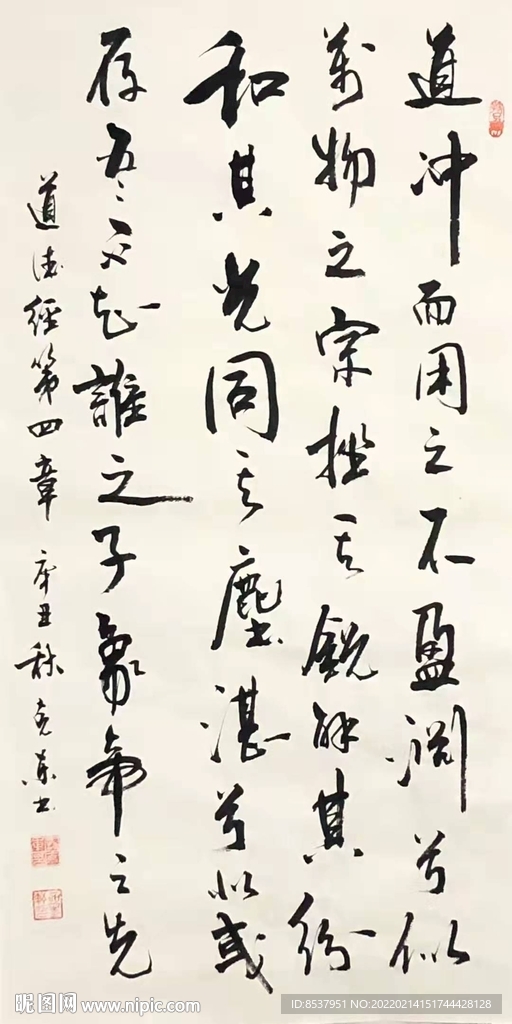 道冲而用之不盈渊兮似
萬物之宗挫其銳解其纷
和其光同其塵湛兮似或
存吾不知誰之子象帝之先
道德經第四章 辛丑秋 克东书
昵图网 www.nipic.com
ID:8537951 NO:20220214151744428128